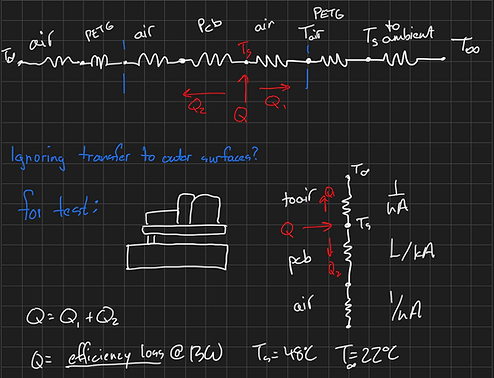 air PETG air Pcb air PETG to
T∞ Ts Tair Ts ambient T∞
Q2 Q Q1
Ignoring transfer to outer surfaces?
for test:
T∞
to air Q1 1/hA
Q Ts
pcb Q2 L/kA
air 1/hA
Q = Q1 + Q2
Q = efficiency loss @ 13W Ts = 48°C T∞ = 22°C